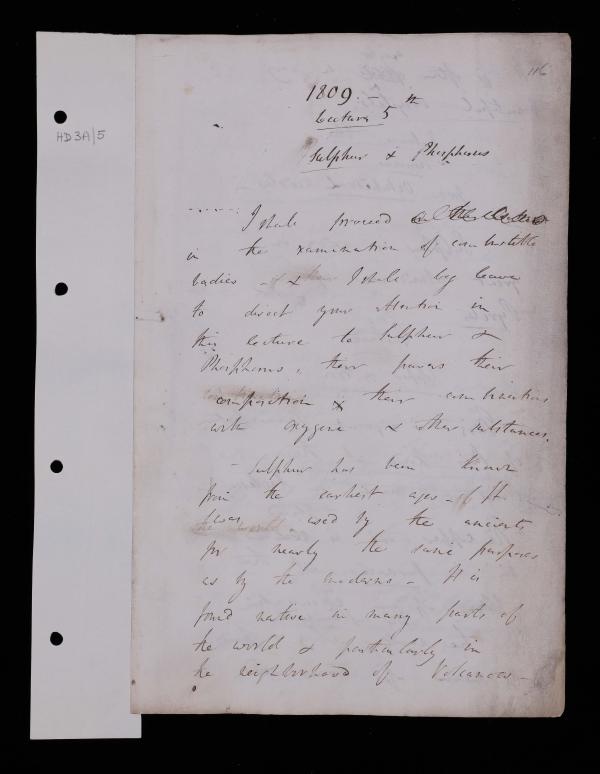 116
HD3A/5
1809. -
Lecture 5th
Sulphur & Phosphorus
I shall proceed
in the examination of combustible
bodies - & I shall beg leave
to direct your attention in
this Lecture to Sulphur &
Phosphorus, their powers their
composition & their combinations
with oxygene & other substances.
- Sulphur has been known
from the earliest ages - It
was used by the ancients
for nearly the same purposes
as by the moderns - It is
found native in many parts of
the world & particularly in
the neighborhood of Volcanoes -